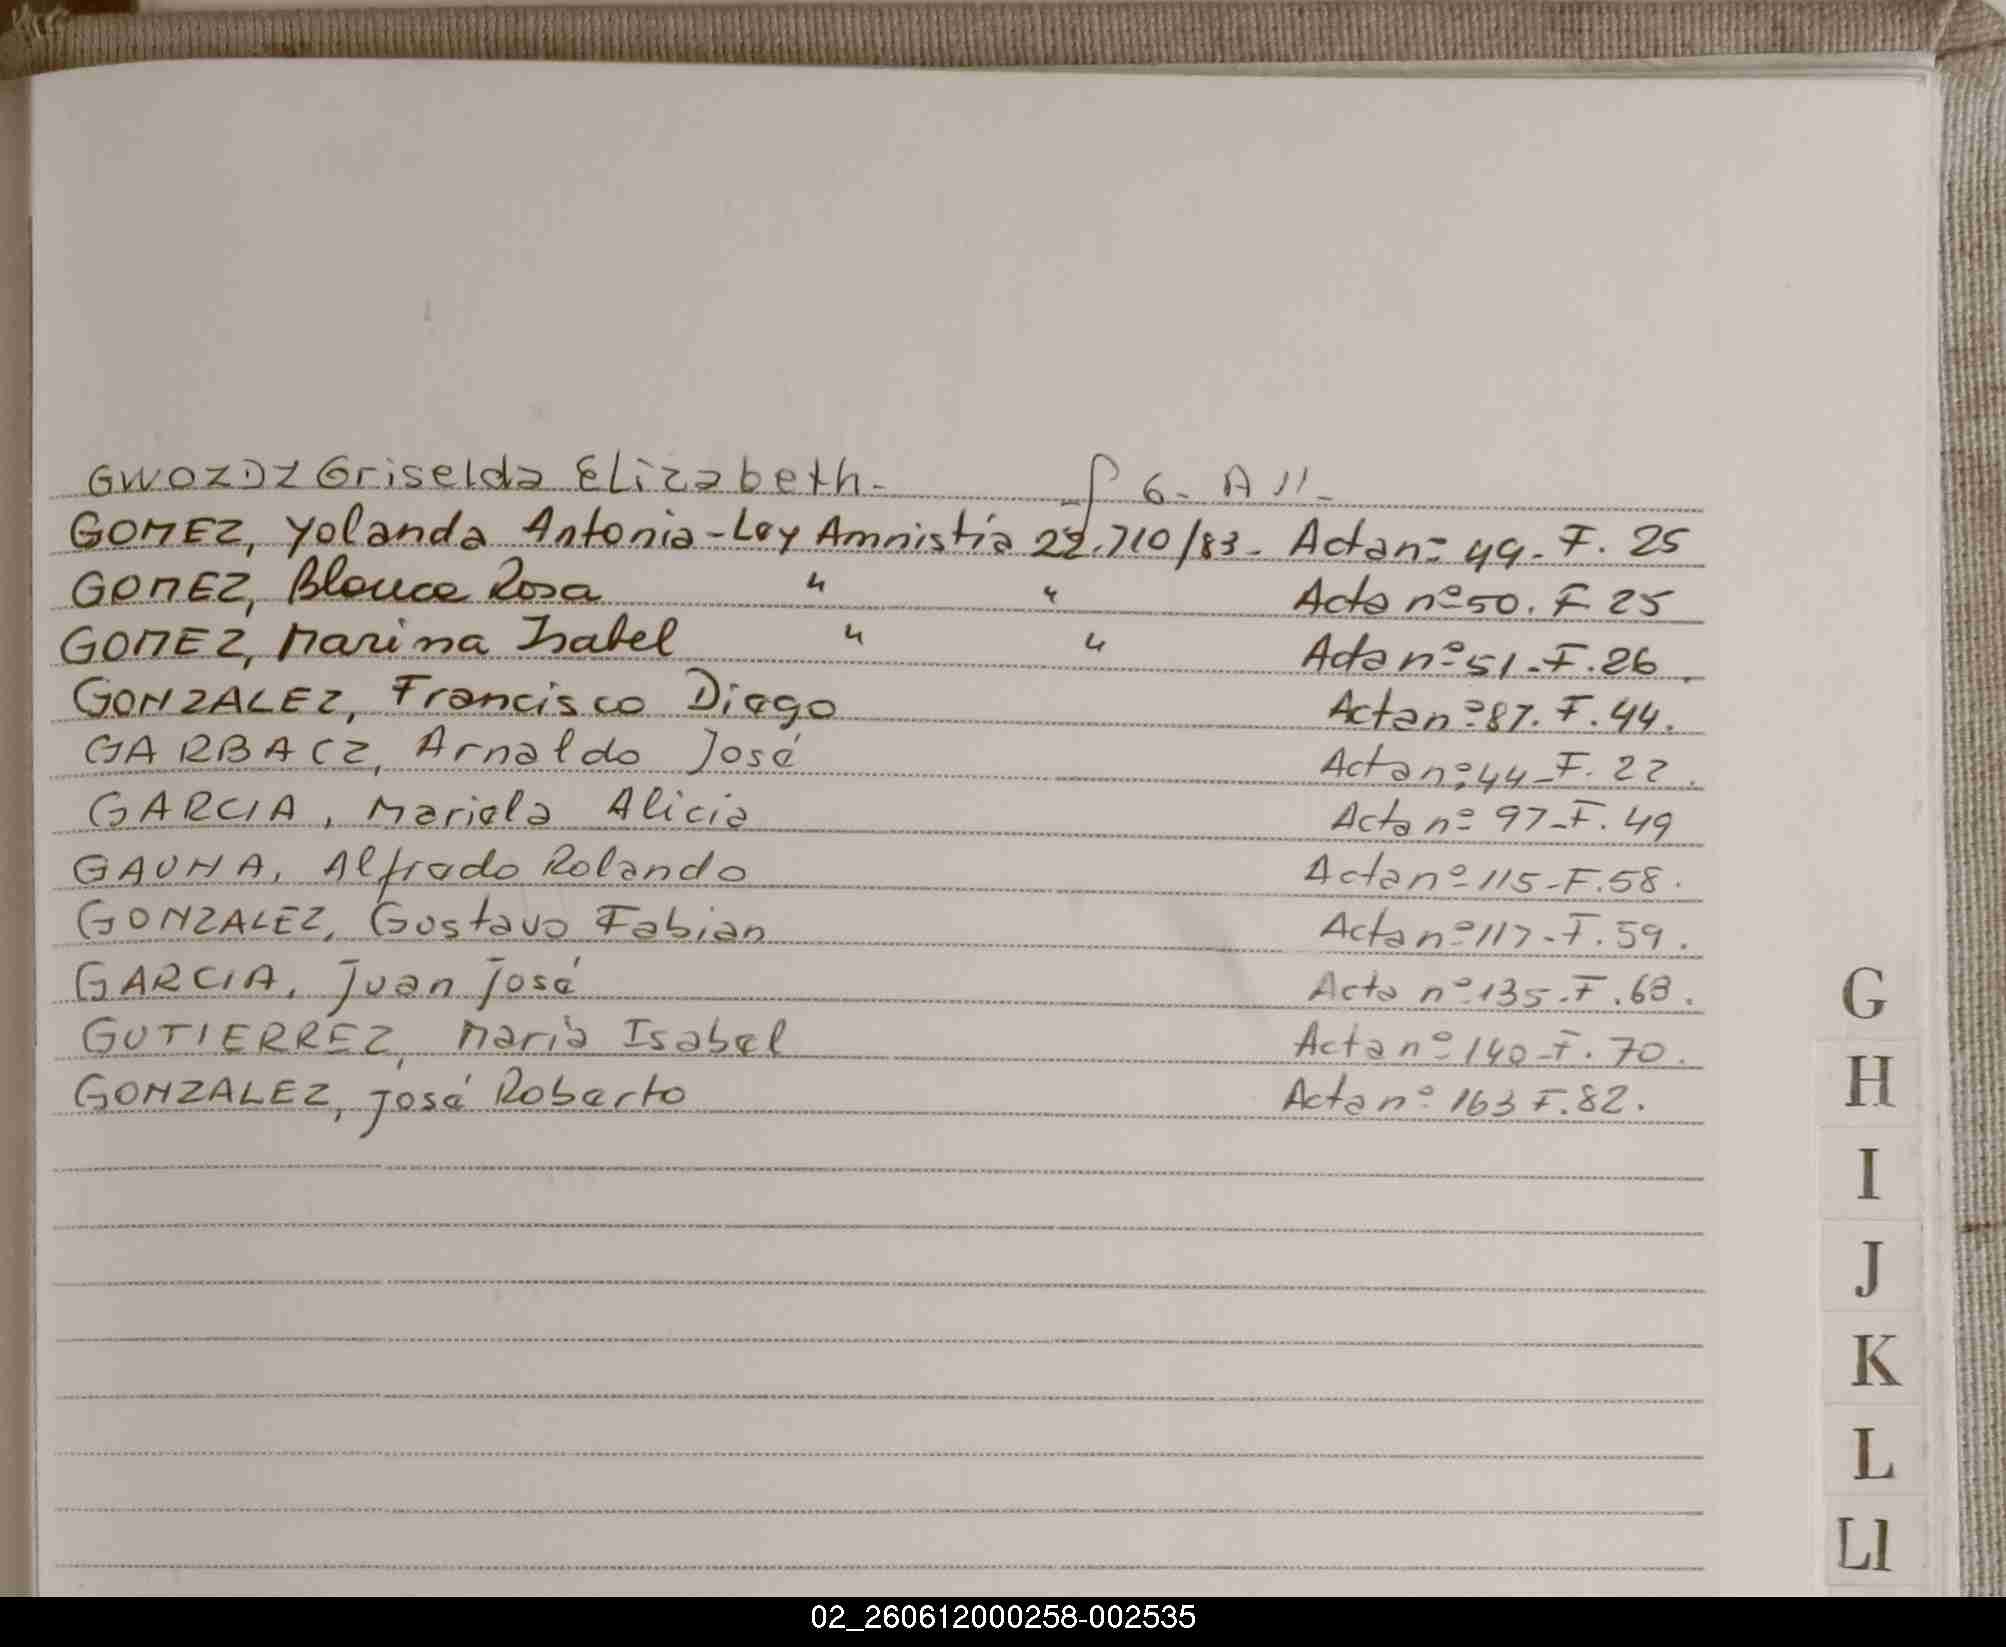 GWOZDZ Griselda Elizabeth. f 6. A 11.
GOMEZ, Yolanda Antonia-Ley Amnistía 22.710/83. Acta nº 49. F. 25
GOMEZ, Blanca Rosa " " Acta nº 50. F 25
GOMEZ, Marina Isabel " " Acta nº 51. F. 26.
GONZALEZ, Francisco Diego Acta nº 87. F. 44.
GARBACZ, Arnaldo José Acta nº 44. F. 22.
GARCIA, Mariela Alicia Acta nº 97. F. 49
GAUNA, Alfredo Rolando Acta nº 115. F. 58.
GONZALEZ, Gustavo Fabian Acta nº 117. F. 59.
GARCIA, Juan José Acta nº 135. F. 68.
GUTIERREZ, María Isabel Acta nº 140. F. 70.
GONZALEZ, José Roberto Acta nº 163 F. 82.
G
H
I
J
K
L
Ll
02_260612000258-002535